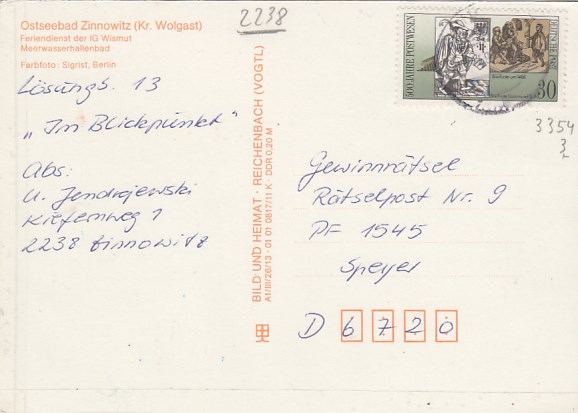 2238
Ostseebad Zinnowitz (Kr. Wolgast)
Feriendienst der IG Wismut
Meerwasserhallenbad
Farbfoto: Sigrist, Berlin
Lösungsb. 13
„Im Blickpunkt"
Abs:
U. Jendrajewski
Kiefernweg 1
2238 Zinnowitz
BILD UND HEIMAT · REICHENBACH (VOGTL)
A1/III/26/13 · 01 01 0817/11 K · DDR 0.20 M
500 JAHRE POSTWESEN
DEUTSCHE POST
30
3354
3
Gewinnrätsel
Rätselpost Nr. 9
PF 1545
Speyer
D 6720